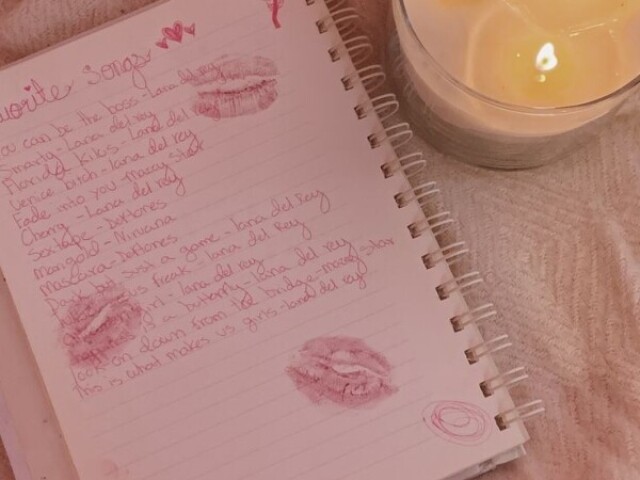 vorite songs
ou can be the boss - lana del rey
Smarty - Lana del rey
Florida kilos - Lana del
Venice bitch - lana del rey
Fade into you - mazzy star
Cherry - Lana del rey
Sextape - Deftones
Marigold - Nirvana
Mascara - Deftones
just a game - lana del Rey
us freak - lana del Rey
girl - lana del rey
is a butterfly - lana del rey
look on down from the bridge - mazzy star
This is what makes us girls - lana del rey